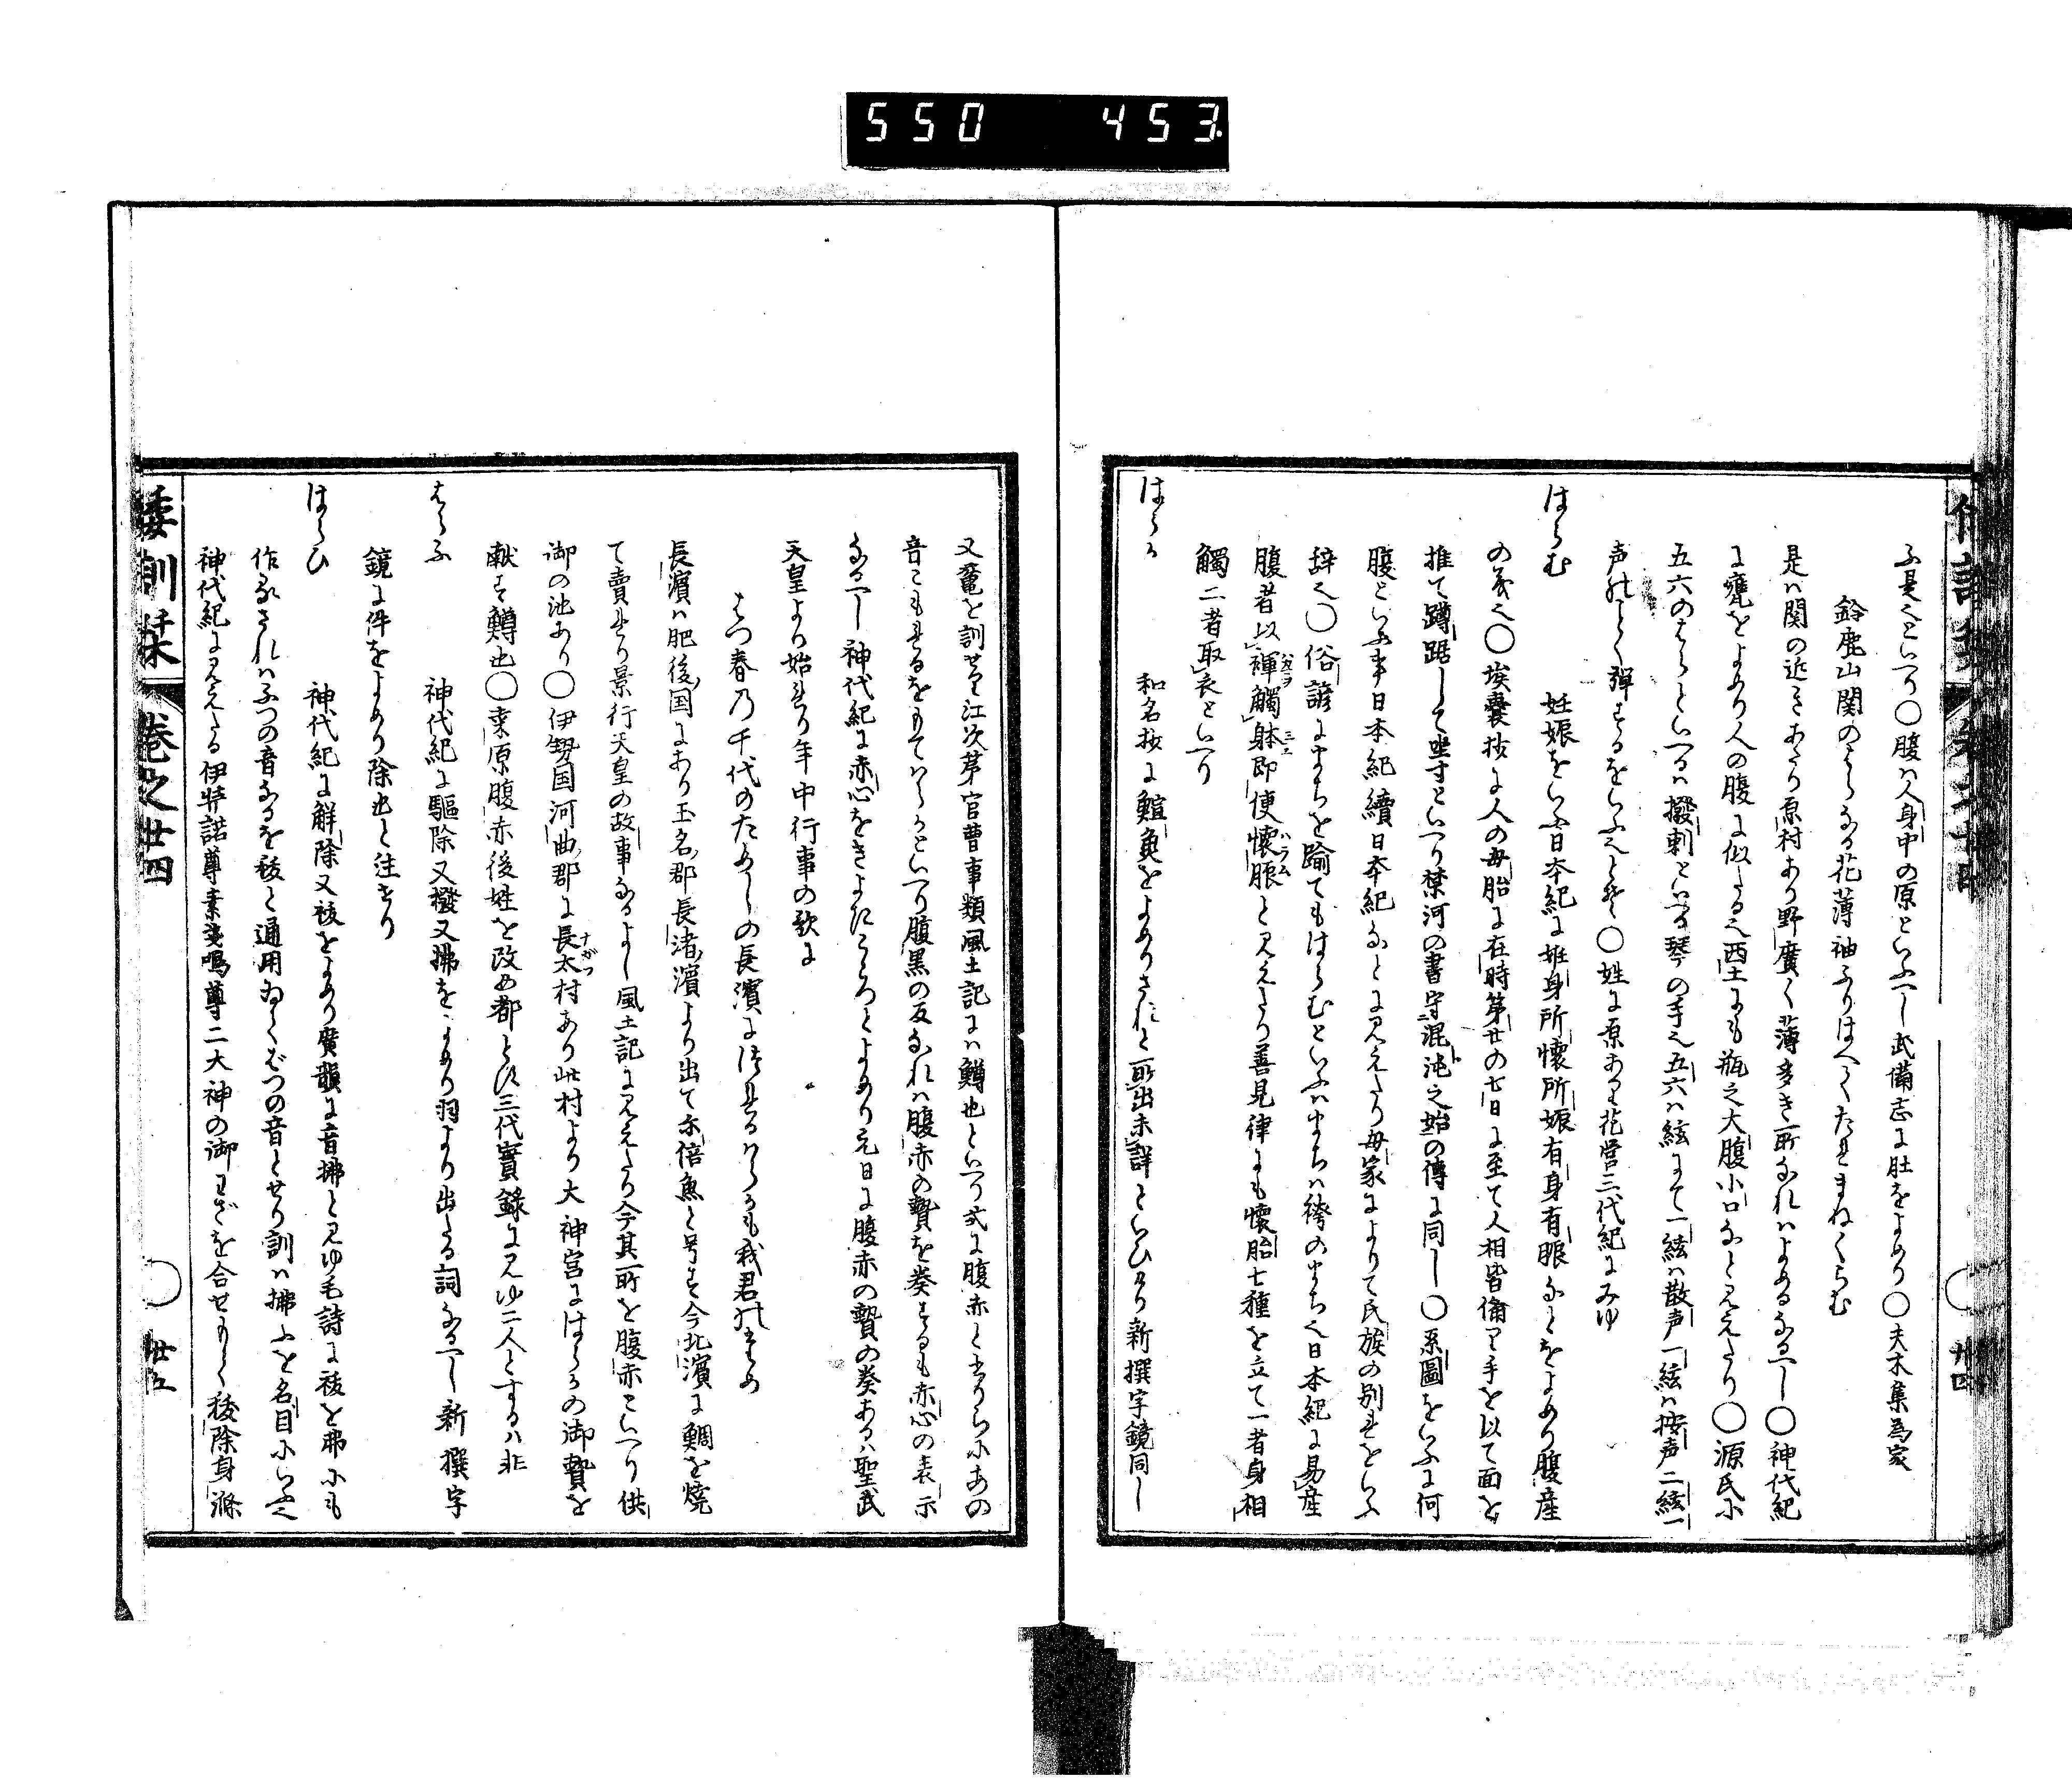 550 453
ふ是也といへり○腹ハ人身中の原といふへし武備志に肚をよめり○夫木集為家
鈴鹿山関のはらなる花薄袖ふりはへてたれまねくらむ
是ハ関の近きあたり原村あり野廣く薄多き所なれハよめるなるへし○神代紀
に甕をよめり人の腹に似たる也西土にも瓶之大腹小口なと見えたり○源氏に
五六のはらといへるハ撥剌といへる琴の手也五六ハ絃にて一絃ハ散声一絃ハ按声二絃一
声のことく弾するをいふ也とそ○姓に原あり花営三代紀にみゆ
はらむ 妊娠をいふ日本紀に姙身所懐所娠有身有脤なとをよめり腹産
の義也○埃嚢抄に人の母胎に在時第廿の七日に至て人相皆備り手を以て面を
推て蹲踞して坐すといへり禁河の書守混沌之始の傳に同し○系圖をいふに何
腹といふ事日本紀續日本紀なとに見えたり母家によりて民族の別をいふ
辞也○俗諺にまちを踰てもはらむといふハまちハ袴のまち也日本紀に易産
腹者以褌觸躰即便懐脤と見えたり善見律にも懐胎七種を立て一者身相
觸二者取衣といへり
はらか 和名抄に䱱魚をよめりされと所出未詳といひたり新撰字鏡同し
又鼈を訓せり江次第官曹事類風土記にハ鱒也といへり式に腹赤と書りらにあの
音こもれるをもてはらかといへり腹黒の反なれハ腹赤の贄を奏するも赤心の表示
なるへし神代紀に赤心をきよきこゝろとよめり元日に腹赤の贄の奏あるハ聖武
天皇より始れり年中行事の歌に
はつ春乃千代のためしの長濱につれるはらかも我君のため
長濱ハ肥後国にあり玉名郡長渚濱より出て尓倍魚と号す今北濱に鯛を焼
て賣れり景行天皇の故事なるよし風土記に見えたり今其所を腹赤といへり供
御の池あり○伊勢国河曲郡に長太村あり此村より大神宮にはらかの御贄を
献す鱒也○桒原腹赤後姓を改め都とす三代實録に見ゆ二人とするハ非
はらふ 神代紀に驅除又撥又拂をよめり羽より出たる詞なるへし新撰字
鏡に件をよめり除也と注せり
はらひ 神代紀に解除又祓をよめり廣韻に音拂と見ゆ毛詩に祓を弗にも
作るされハふつの音なるを祓と通用ゐてばつの音とせり訓ハ拂ふを名目にいふ也
神代紀に見えたる伊弉諾尊素戔嗚尊二大神の御わざを合せもて祓除身滌
倭訓栞 巻之廿四 廿五